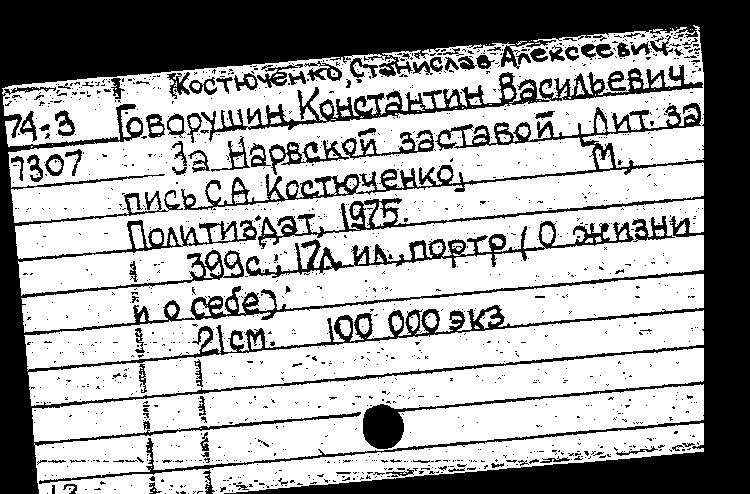 Костюченко, Станислав Алексеевич.
74-3 Говорушин, Константин Васильевич
7307 За Нарвской заставой. [Лит. за
пись С.А. Костюченко, М.,
Политиздат, 1975.
399с.; 17л. ил., портр. (О жизни
и о себе).
21см. 100 000 экз.